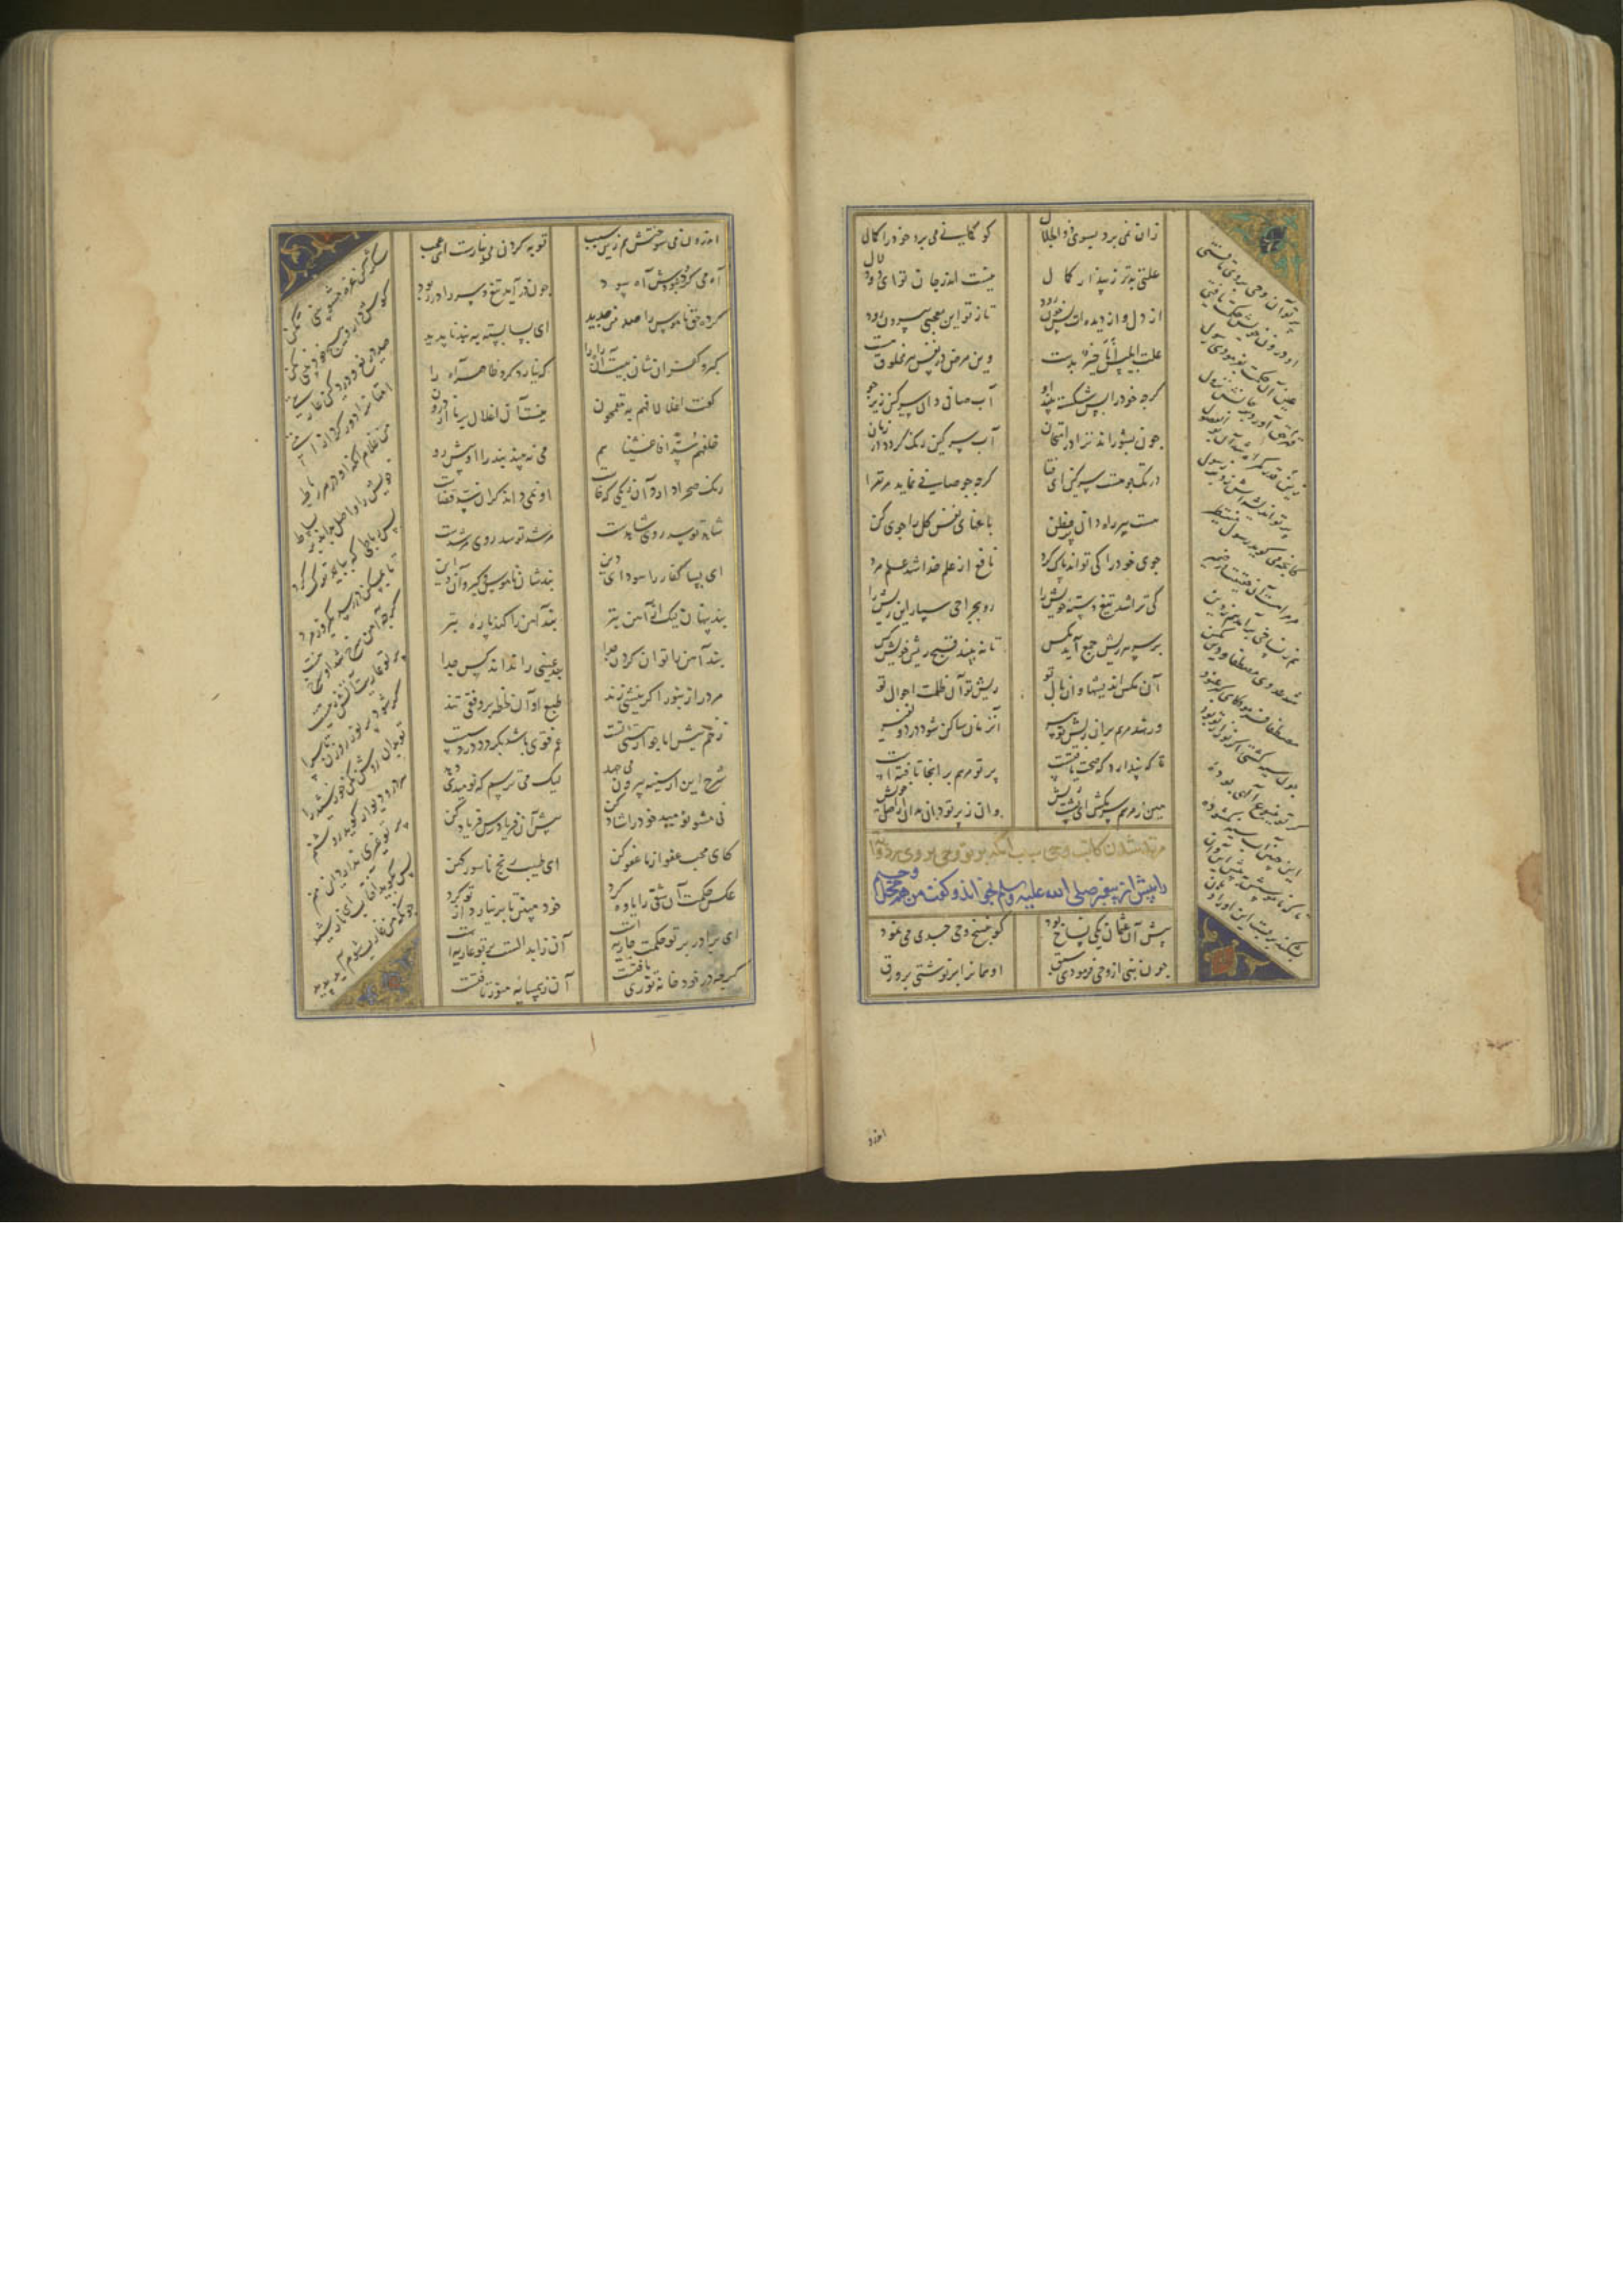 زان نمی پرد بسوی ذو الجلال
کو گمانی می برد خود را کمال
علتی بتر ز پندار کمال
نیست اندر جان تو ای ذو دلال
از دل و از دیده ات بس خون رود
تا ز تو این معجبی بیرون رود
علت ابلیس انا خیر بدست
وین مرض در نفس هر مخلوق هست
گرچه خود را بس شکسته بیند او
آب صافی دان و سرگین زیر جو
چون بشوراند ترا در امتحان
آب سرگین رنگ گردد در زمان
در تک جو هست سرگین ای فتا
گرچه جو صافی نماید مر ترا
هست پیر راه دانی پر فطن
باغهای نفس کل را جوی کن
جوی خود را کی تواند پاک کرد
نافع از علم خدا شد علم مرد
کی تراشد تیغ دسته خویش را
رو بجراحی سپار این ریش را
بر سر هر ریش جمع آید مگس
تا نه بیند قبح ریش خویش کس
آن مگس اندیشها وان مال تو
ریش تو آن ظلمت احوال تو
ور نهد مرهم بران ریش تو پیر
آن زمان ساکن شود درد و نفیر
تا که پندارد که صحت یافتست
پرتو مرهم بر انجا تافتست
هین ز مرهم سر مکش ای پشت ریش
وان ز پرتو دان مدان از اصل خویش
مرتد شدن کاتب وحی بسبب آنکه پرتو وحی بر وی زد
پیش از پیغمبر صلی الله علیه وسلم بخواند و گفت من هم محل وحیم
پیش از عثمان یکی نساخ بود
کو بنسخ وحی جدی می نمود
چون نبی از وحی فرمودی سبق
او همان را بر نوشتی بر ورق
پرتو آن وحی بر وی تافتی
او درون خویش حکمت یافتی
عین آن حکمت بفرمودی رسول
قهر حق آورد بر جانش نزول
زین قدر گمراه شد آن بو الفضول
پرتو اندیشه اش زد بر رسول
کانچه می گوید رسول مستنیر
مر مرا هست آن حقیقت در ضمیر
هم ز نساخی بر آمد هم ز دین
شد عدوی مصطفا و دین بکین
مصطفا فرمود کای گبر عنود
چون سیه گشتی اگر نور از تو بود
گر تو ینبوع الهی بودیی
این چنین آب سیه نگشودیی
تا که ناموسش به پیش این و آن
نشکند بر بست این او را دهان
اندر
اندرون می سوختش هم زین سبب
توبه کردن می نیارست ای عجب
آه می کرد و نبودش آه سود
چون در آمد تیغ و سر را در ربود
کرده حق ناموس را صد من حدید
ای بسا بسته به بند ناپدید
کبر و کفر آنسان ببست آن راه را
که نیارد کرد ظاهر آه را
گفت اغلالا فهم به مقمحون
نیست آن اغلال بر ما از برون
خلفهم سدا فاغشیناهم
می نه بیند بند را او پیش رو
رنگ صحرا دارد آن سدی که خاست
او نمی داند که آن سد قضاست
شاهد تو سد روی شاهدست
مرشد تو سد روی مرشدست
ای بسا کفار را سودای دین
بندشان ناموس و کبر و آن و این
بند پنهان لیک از آهن بتر
بند آهن را کند پاره تبر
بند آهن را توان کردن جدا
بند غیبی را نداند کس دوا
مرد را زنبور اگر نیشی زند
طبع او آن لحظه بر دفعی تند
زخم نیش اما چو از هستی تست
غم قوی باشد نگردد درد سست
شرح این از سینه بیرون می جهد
لیک می ترسم که نومیدی دهد
نی مشو نومید خود را شاد کن
پیش آن فریاد رس فریاد کن
کای محب عفو از ما عفو کن
ای طبیب رنج ناسور کهن
عکس حکمت آن شقی را یاوه کرد
خود مبین تا بر نیارد از تو گرد
ای برادر بر تو حکمت جاریه است
آن ز ابدالست بر تو عاریه است
گرچه در خود خانه نوری یافتست
آن ز همسایه منور تافتست
شکر کن غره مشو بینی مکن
گوش دار و هیچ خود بینی مکن
صد دریغ و درد کین عاریتی
امتان را دور کرد از امتی
من غلام آنکه او در هر رباط
خویش را واصل نداند بر سماط
بس رباطی که بباید ترک کرد
تا بمسکن در رسد یک روز مرد
گرچه آهن سرخ شد او سرخ نیست
پرتو عاریت آتش زنیست
گر شود پر نور روزن یا سرا
تو مدان روشن مگر خورشید را
هر در و دیوار گوید روشنم
پرتو غیری ندارم این منم
پس بگوید آفتاب ای نارشید
چونکه من غارب شوم آید پدید